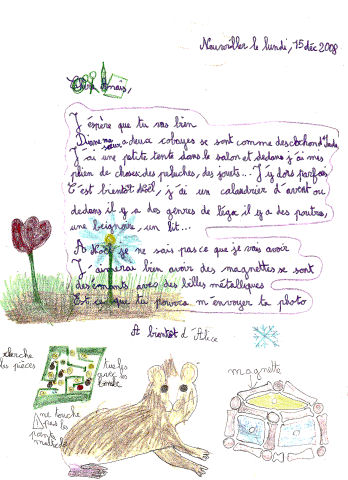 Neuwiller le lundi, 15 déc 2008
Chère Anaïs,
J'éspère que tu vas bien
Diane ma sœur a deux cobayes se sont comme des cochon d'Inde
J'ai une petite tente dans le salon et dedans j'ai mes
plein de choses des peluches, des jouets... J'y dors parfois
C'est bientôt Noël, j'ai un calandrier d'avent ou
dedans il y a des genres de légo il y a des poutres,
une beignoire, un lit...
A Noël je ne sais pas ce que je vais avoir
J'aimerai bien avoir des magnettes se sont
des émants avec des billes métalliques
Est ce que tu pourra m'envoyer ta photo
A bientôt d'Alice
cherche les pièces
tue les avec les bombe
ne touche pas les points
magnette